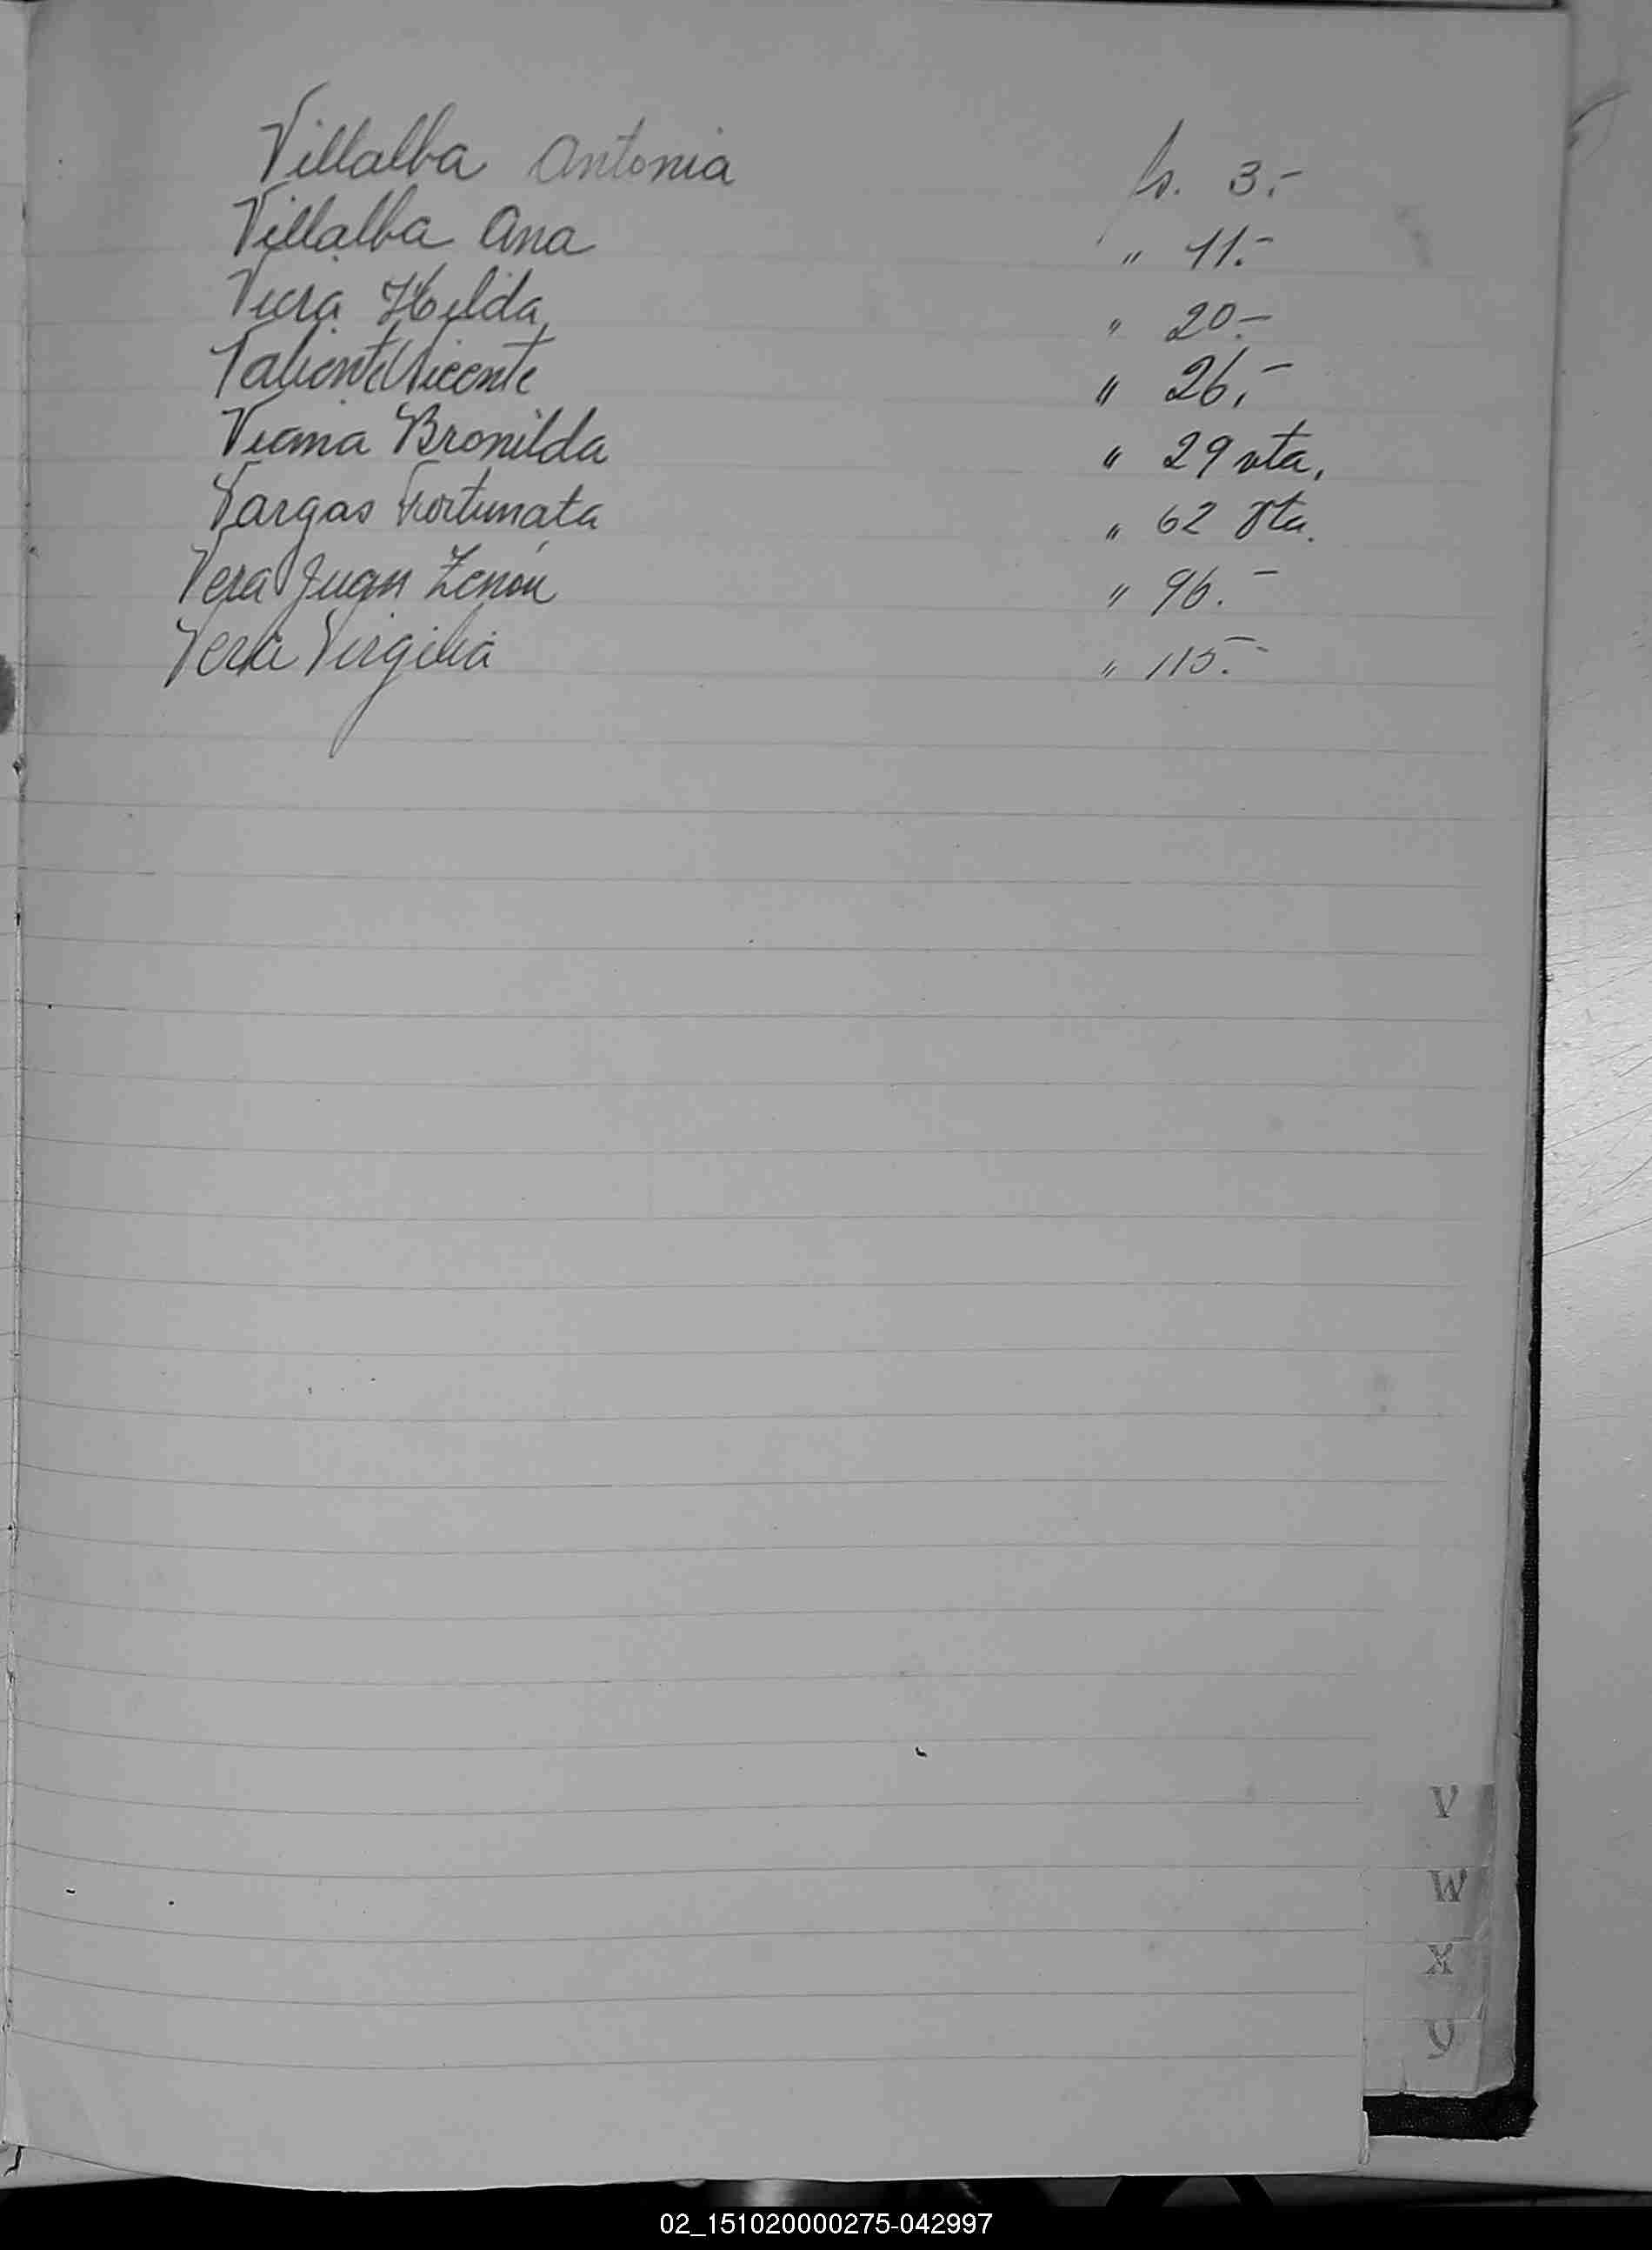 Villalba Antonia fs. 3.-
Villalba Ana " 11.-
Viera Hilda " 20.-
Valiente Vicente " 26.-
Viana Bronilda " 29 vta.
Vargas Fortunata " 62 vta.
Vera Juan Zenón " 96.-
Vera Virgilia " 115.-
V
W
X
Y
02_151020000275-042997